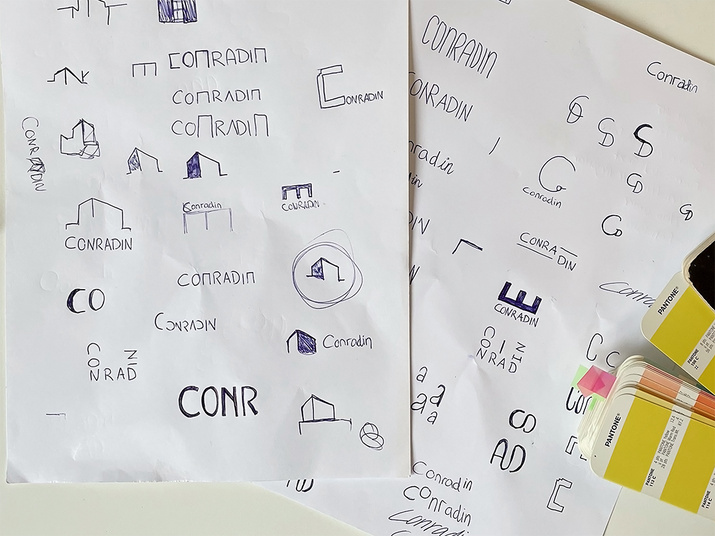 CONRADIN
CONRADIN
CONRADIN
CONRADIN
CONRADIN
Conradin
CONRADIN
CONRADIN
CONRADIN
CO
CONRADIN
Conradin
CONRADIN
CONR
CONRADIN
Conradin
ONRADIN
nradin
Conradin
CONRA
DIN
CONRADIN
CONRADIN
C
a
a
a
a
a
CO
AD
Conradin
Conradin
Conradi
PANTONE®
PANTONE®